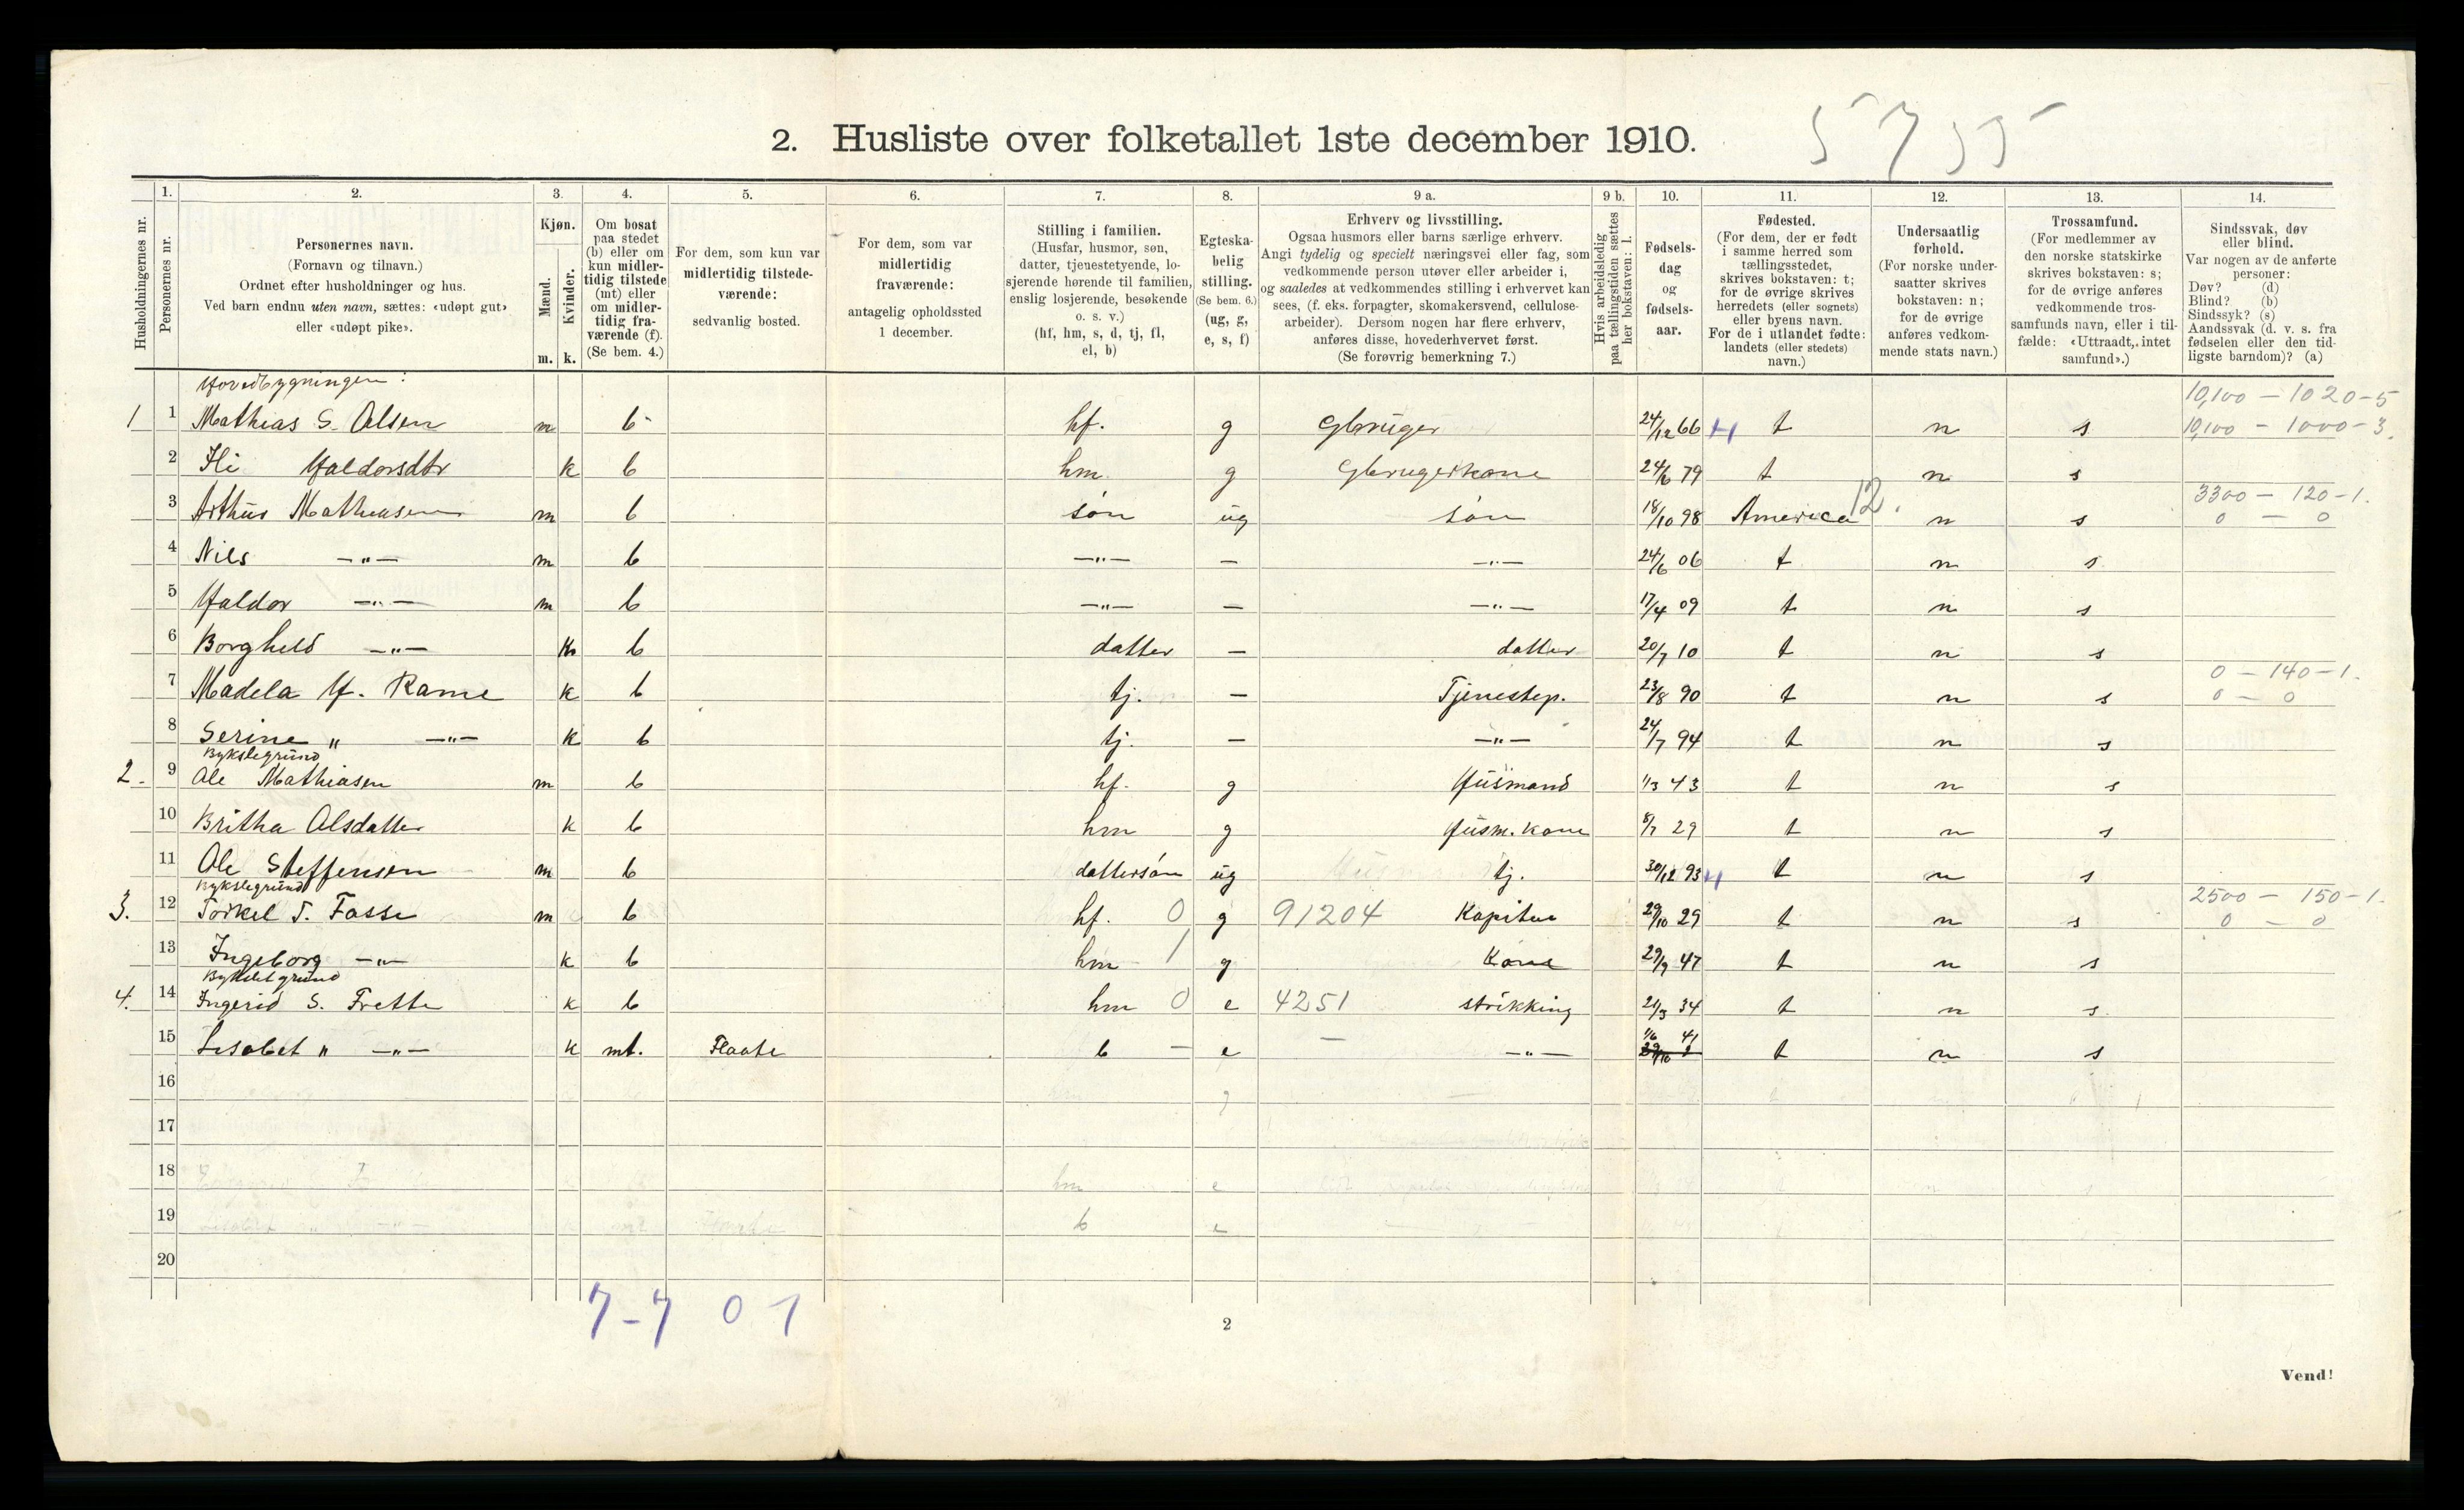 2. Husliste over folketallet 1ste december 1910.
1. 2. 3. 4. 5. 6. 7. 8. 9 a. 9 b. 10. 11. 12. 13. 14.
Husholdningernes nr.
Personernes nr.
Personernes navn.
(Fornavn og tilnavn.)
Ordnet efter husholdninger og hus.
Ved barn endnu uten navn, sættes: «udøpt gut»
eller «udøpt pike».
Kjøn.
Mænd.
Kvinder.
m. k.
Om bosat
paa stedet
(b) eller om
kun midler-
tidig tilstede
(mt) eller
om midler-
tidig fra-
værende (f).
(Se bem. 4.)
For dem, som kun var
midlertidig tilstede-
værende:
sedvanlig bosted.
For dem, som var
midlertidig
fraværende:
antagelig opholdssted
1 december.
Stilling i familien.
(Husfar, husmor, søn,
datter, tjenestetyende, lo-
sjerende hørende til familien,
enslig losjerende, besøkende
o. s. v.)
(hf, hm, s, d, tj, fl,
el, b)
Egteska-
belig
stilling.
(Se bem. 6.)
(ug, g,
e, s, f)
Erhverv og livsstilling.
Ogsaa husmors eller barns særlige erhverv.
Angi tydelig og specielt næringsvei eller fag, som
vedkommende person utøver eller arbeider i,
og saaledes at vedkommendes stilling i erhvervet kan
sees, (f. eks. forpagter, skomakersvend, cellulose-
arbeider). Dersom nogen har flere erhverv,
anføres disse, hovederhvervet først.
(Se forøvrig bemerkning 7.)
Hvis arbeidsledig
paa tællingstiden sættes
her bokstaven: l.
Fødsels-
dag
og
fødsels-
aar.
Fødested.
(For dem, der er født
i samme herred som
tællingsstedet,
skrives bokstaven: t;
for de øvrige skrives
herredets (eller sognets)
eller byens navn.
For de i utlandet fødte:
landets (eller stedets)
navn.)
Undersaatlig
forhold.
(For norske under-
saatter skrives
bokstaven: n;
for de øvrige
anføres vedkom-
mende stats navn.)
Trossamfund.
(For medlemmer av
den norske statskirke
skrives bokstaven: s;
for de øvrige anføres
vedkommende tros-
samfunds navn, eller i til-
fælde: «Uttraadt, intet
samfund».)
Sindssvak, døv
eller blind.
Var nogen av de anførte
personer:
Døv? (d)
Blind? (b)
Sindssyk? (s)
Aandssvak (d. v. s. fra
fødselen eller den tid-
ligste barndom)? (a)
Hovedbygningen: 10,100 — 1020-5
1 1 Mathias S. Olsen m b hf. g Gbruger 24/12 66 t n s 10,100 - 1000-3.
2 Ili Haldorsdtr k b hm. g Gbrugerkone 24/6 79 t n s
3300 — 120-1.
3 Arthur Mathiasen m b søn ug søn 18/10 98 America 12. n s 0 — 0
4 Nils —"— m b —"— — —"— 24/6 06 t n s
5 Haldor —"— m b —"— — —"— 17/4 09 t n s
6 Borghild —"— k b datter — datter 20/7 10 t n s
0 — 140-1.
7 Madela H. Rame k b tj. — Tjenestep. 23/8 90 t n s 0 — 0
8 Serine " —"— k b tj. — —"— 24/7 94 t n s
Bykslegrund
2. 9 Ole Mathiasen m b hf. g Husmand 1/3 43 t n s
10 Britha Olsdatter k b hm g Husm. kone 8/7 29 t n s
11 Ole Steffensen m b dattersøn ug tj. 30/12 93 t n s
Bykslegrund 2500 — 150-1.
3. 12 Torkel T. Fosse m b hf. 0 g 91204 Kapitua 29/10 29 t n s 0 — 0
13 Ingeborg —"— k b hm 1 g Kone 29/9 47 t n s
4. 14 Ingerid S. Frette k b hm 0 e 4251 strikking 21/3 34 t n s
15 Lisabet " —"— k mt. Flaate b — e — —"— 1/6 41 t n s
16
17
18
19
20
7-7 0 1
2
Vend!